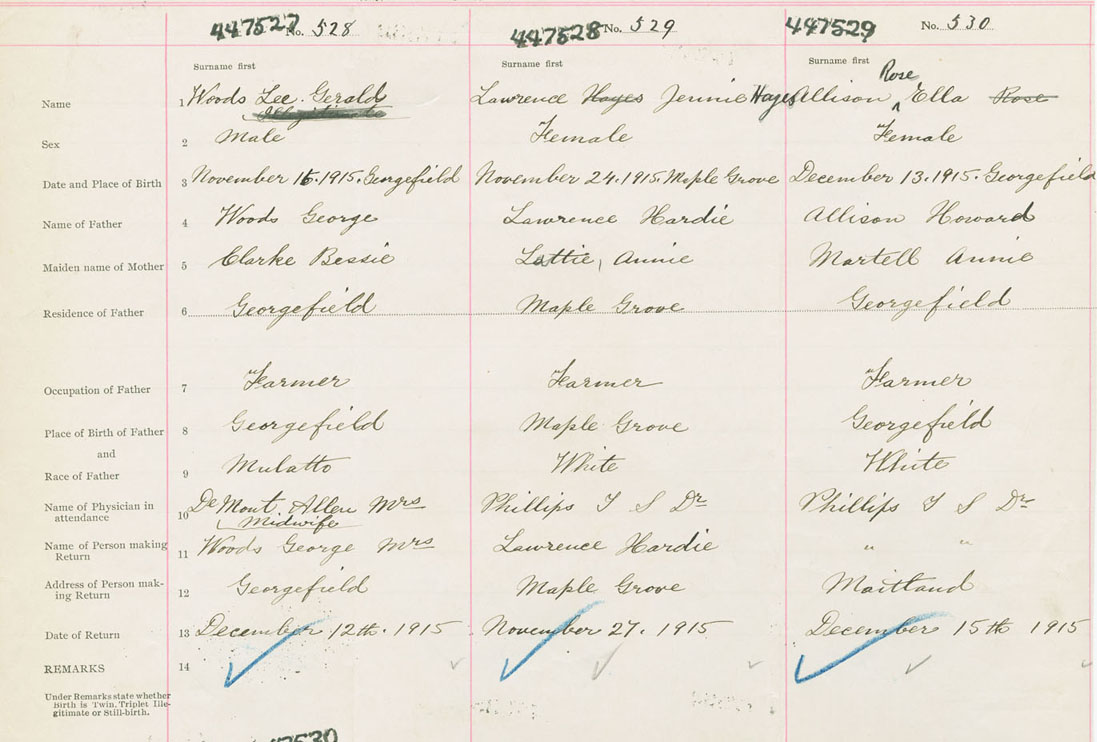 447527 No. 528 447528 No. 529 447529 No. 530
Surname first Surname first Surname first
Rose
Name 1 Woods Lee Gerald Lawrence Hayes Jennie Hayes Allison ^ Ella Rose
Sex 2 Male Female Female
Date and Place of Birth 3 November 15.1915. Georgefield November 24.1915. Maple Grove December 13.1915. Georgefield
Name of Father 4 Woods George Lawrence Hardie Allison Howard
Maiden name of Mother 5 Clarke Bessie Lattie, Annie Martell Annie
Residence of Father 6 Georgefield Maple Grove Georgefield
Occupation of Father 7 Farmer Farmer Farmer
Place of Birth of Father 8 Georgefield Maple Grove Georgefield
and
Race of Father 9 Mulatto White White
Name of Physician in
attendance 10 De Mont. Allen Mrs Phillips T S Dr Phillips T S Dr
Midwife
Name of Person making
Return 11 Woods George Mrs Lawrence Hardie " "
Address of Person mak-
ing Return 12 Georgefield Maple Grove Maitland
Date of Return 13 December 12th. 1915 November 27. 1915 December 15th 1915
REMARKS 14
Under Remarks state whether
Birth is Twin, Triplet Ille-
gitimate or Still-birth.
47530